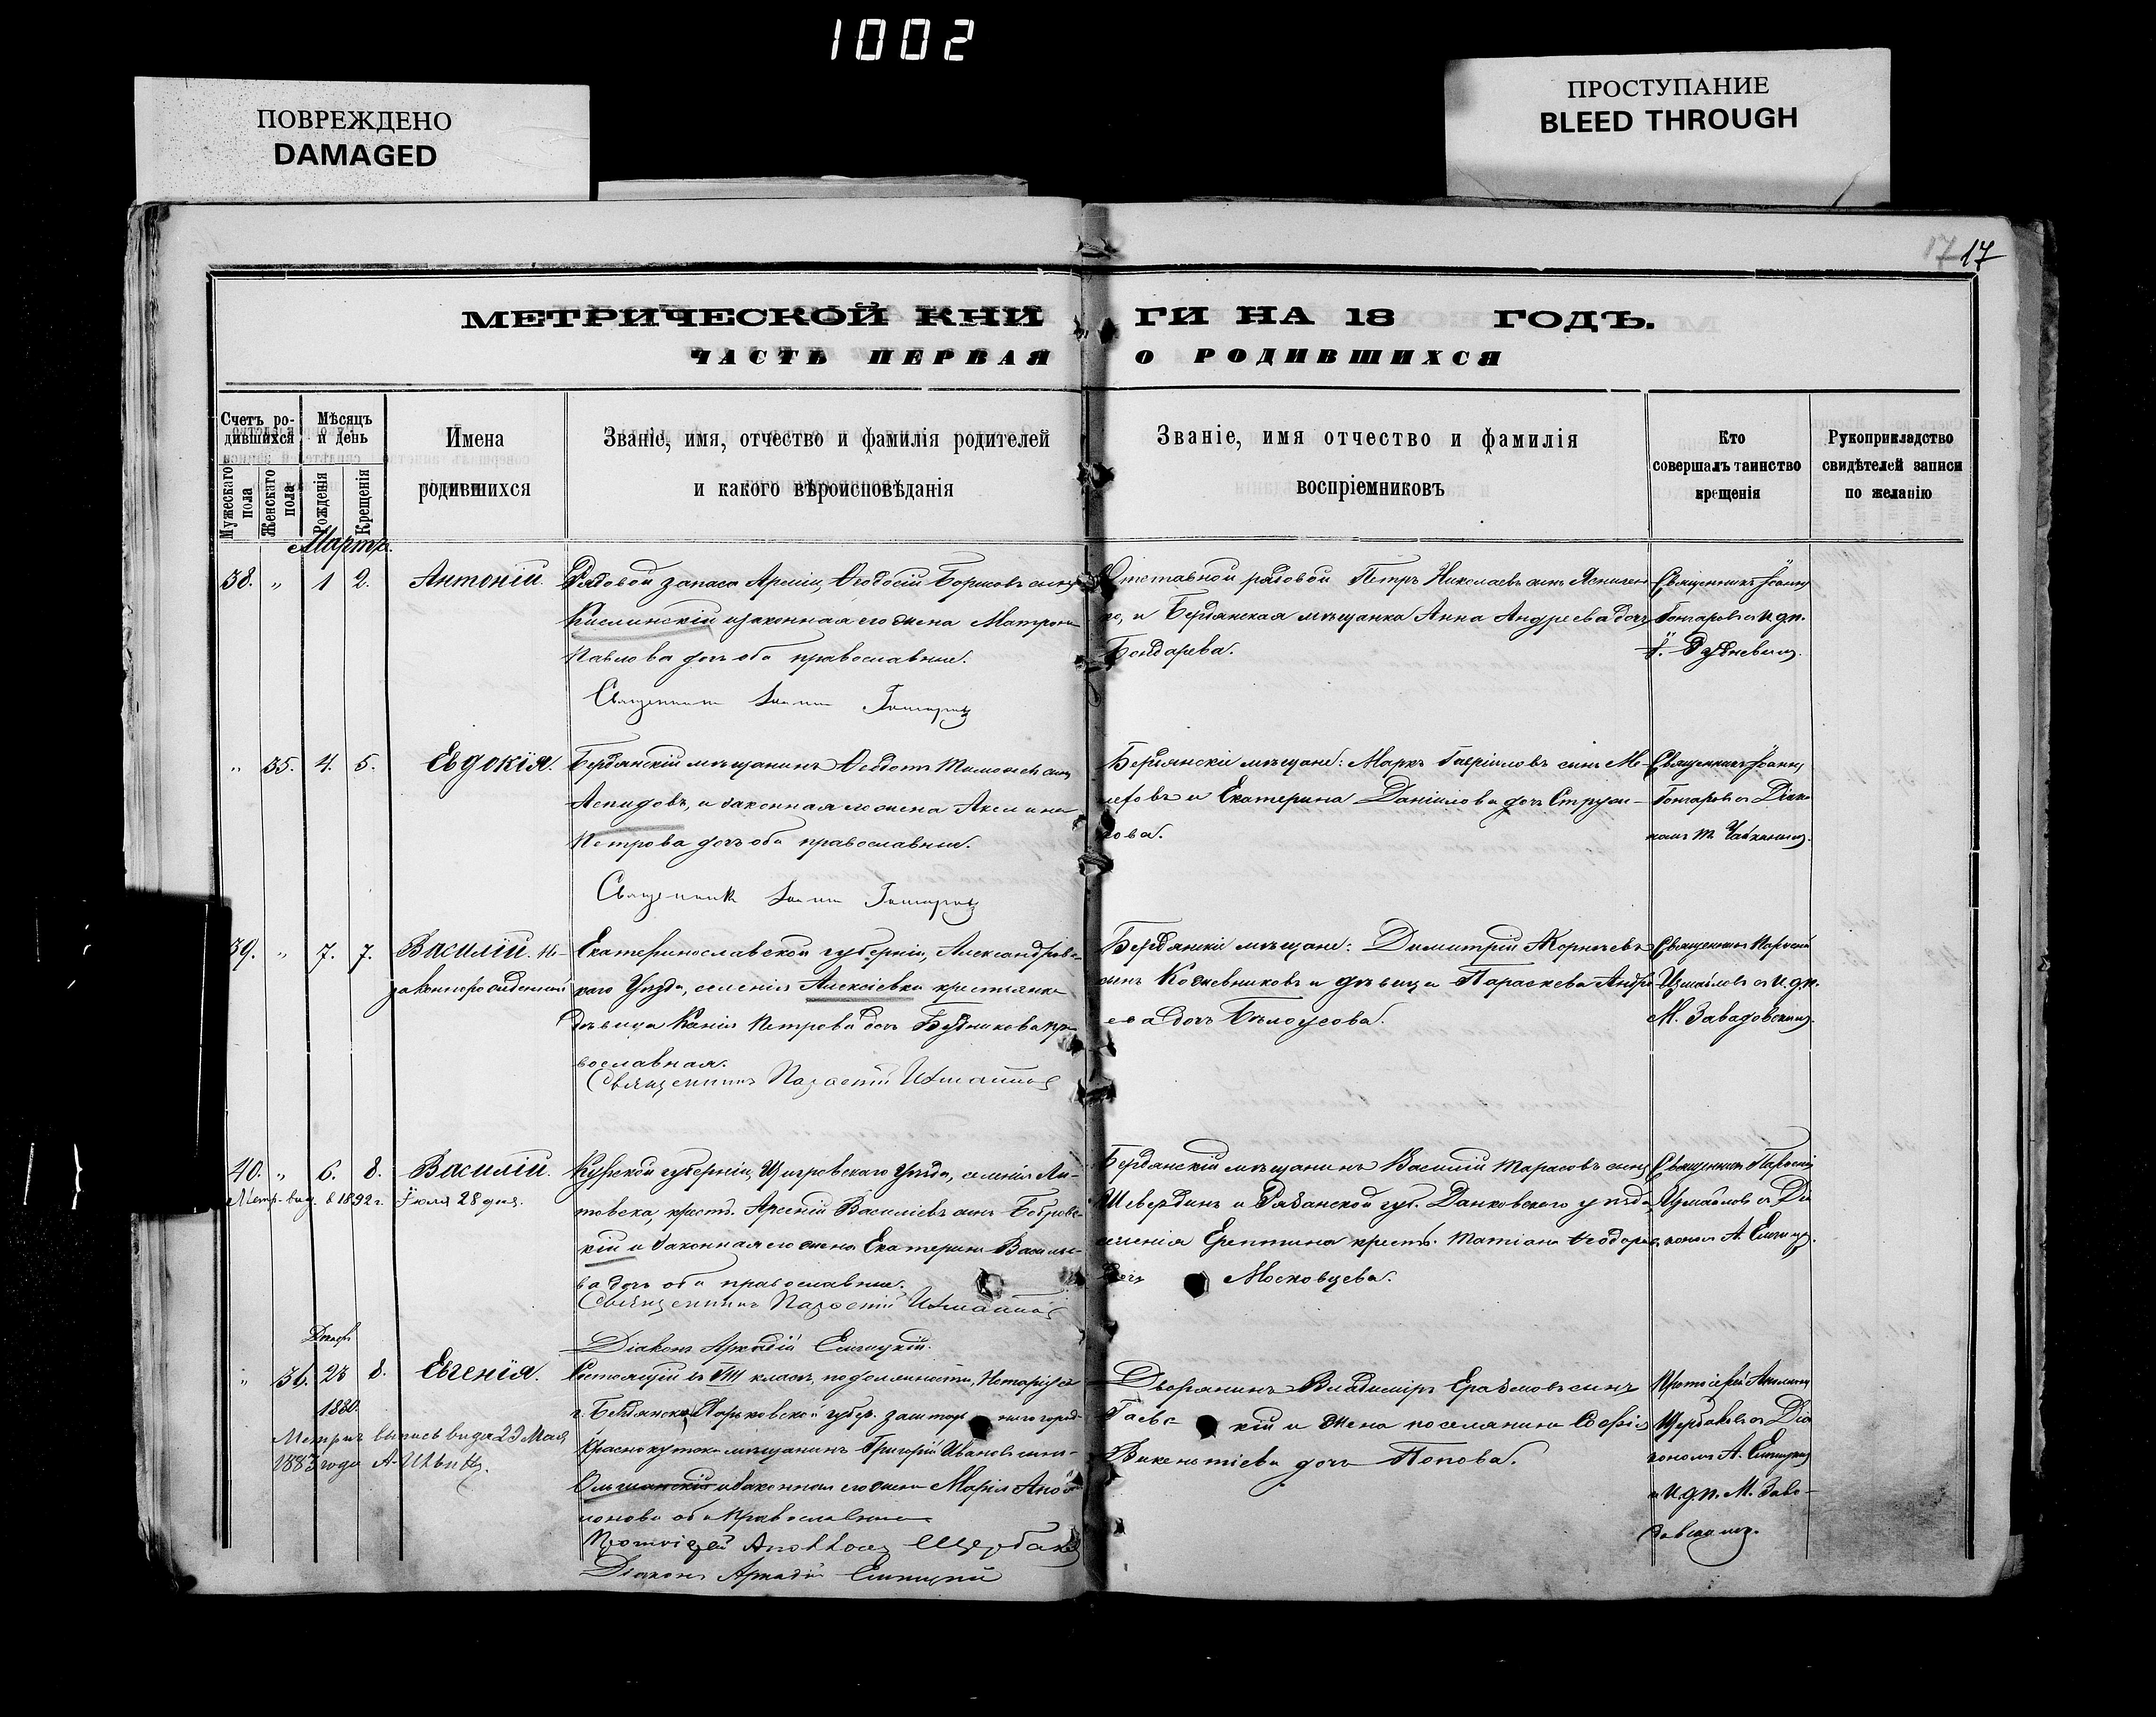 1002
ПОВРЕЖДЕНО
DAMAGED
ПРОСТУПАНИЕ
BLEED THROUGH
17 17
МЕТРИЧЕСКОЙ КНИ ГИ НА 18 ГОДЪ.
ЧАСТЬ ПЕРВАЯ О РОДИВШИХСЯ
Счетъ ро-
дившихся
Мужескаго пола
Женскаго пола
Мѣсяцъ
и день
Рожденія
Крещенія
Имена
родившихся
Званіе, имя, отчество и фамилія родителей
и какого вѣроисповѣданія
Званіе, имя отчество и фамилія
воспріемниковъ
Кто
совершалъ таинство
крещенія
Рукоприкладство
свидѣтелей записи
по желанію
Мартъ.
38. " 1 2. Антоній.
Рядовой запаса Арміи, Ѳеодосій Борисовъ сынъ
Кислинскій и законная его жена Матрона
Павлова дочь оба православные.
Священникъ Іоаннъ Гончаровъ
Отставной рядовой Петръ Николаевъ сынъ
ко, и Бердянская мѣщанка Анна Андреева дочь
Бондарева.
Священникъ Іоаннъ
Гончаровъ с и. д. п.
" 35. 4. 5. Евдокія.
Бердянскій мѣщанинъ Ѳеодотъ сынъ
Аспидовъ, и законная его жена Аксинія
Петрова дочь оба православные.
Священникъ Іоаннъ Гончаровъ
Бердянскіе мѣщане: Маркъ Гавріиловъ сынъ Ме-
и Екатерина Даніилова дочь
кова.
Священникъ Іоаннъ
Гончаровъ с Діако-
номъ
39. " 7. 7. Василій. не-
законнорожденный
Екатеринославской губерніи, Александровс-
каго Уѣзда, селенія Алексѣевки крестьянка
дѣвица Петрова дочь Будникова пра-
вославная.
Священникъ Паисій Измаиловъ
Бердянскіе мѣщане: Димитрій Корнѣевъ
сынъ Кожевниковъ и дѣвица Параскева Андре-
ева дочь Бѣлоусова.
Священникъ
Измаиловъ с и. д. п.
М. Завадовскимъ.
40. " 6. 8. Василій.
Метр. выд. в 1892 г. Іюля 28 дня.
Курской губерніи, Щигровскаго Уѣзда, селенія Ли-
товска, крест. Арсеній Василіевъ сынъ Бобровс-
кій и законная его жена Екатерина Василіе-
ва дочь оба православные.
Священникъ Измаиловъ
Діаконъ Аркадій
Бердянскій мѣщанинъ Василій Тарасовъ сынъ
Шевердинъ и Рязанской губ. Данковскаго уѣзда
селенія крест. Татіана Ѳеодорова
дочь Московцева.
Священникъ
Измаиловъ с Діа-
кономъ А.
Декабр.
" 36. 23 8. Евгенія.
1880.
Метрич. выпись выдана 29 Мая
1883 года
Состоящій въ VIII классѣ, по должности, Нотаріуса
г. Бердянска, Харьковской губер. заштатнаго города
Краснокутска мѣщанинъ Григорій Ивановъ сынъ
Ольшанскій и законная его жена Марія
оба православные
Протоіерей Аполлонъ Щербаковъ
Діаконъ Аркадій
Дворянинъ Владиміръ Еразмовъ сынъ
Гаевс кій и жена поселянина Софія
Викентіева дочь Попова.
Протоіерей Аполлонъ
Щербаковъ с Діа-
кономъ А.
и и. д. п. М. Заво-
довскимъ.